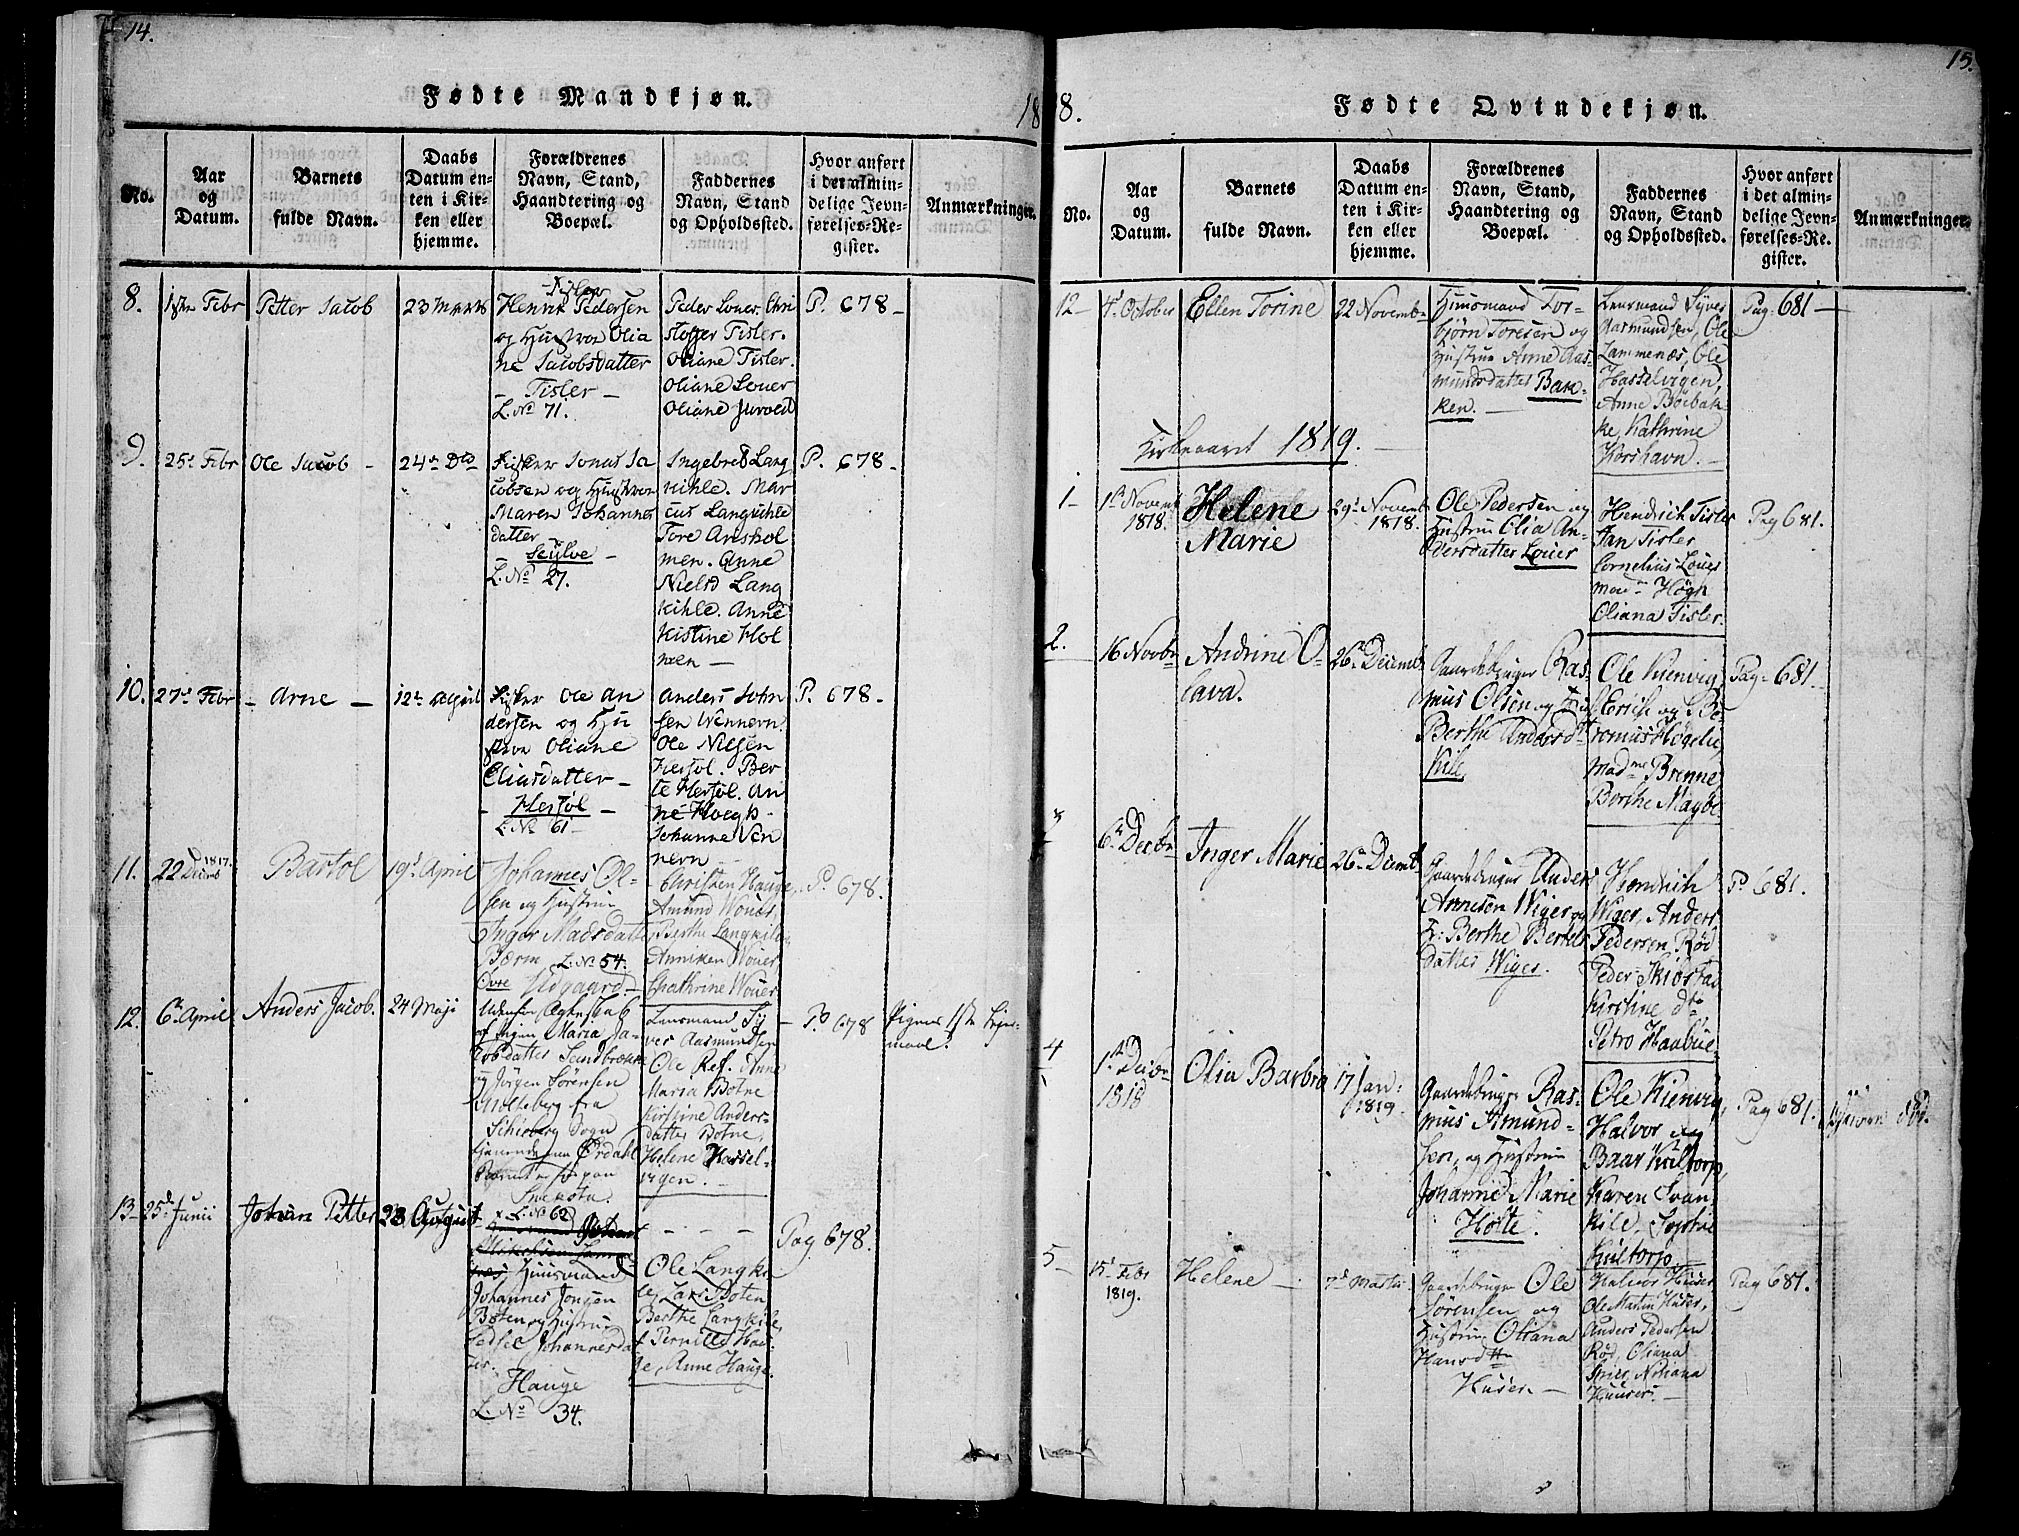 14.
Fødte Mandkjøn.
18
No.
Aar
og
Datum.
Barnets
fulde Navn.
Daabs
Datum en-
ten i Kir-
ken eller
hjemme.
Forældrenes
Navn, Stand,
Haandtering og
Boepæl.
Faddernes
Navn, Stand
og Opholdsted.
Hvor anført
i det almin-
delige Jevn-
førelses-Re-
gister.
Anmærkninger.
8.
18de Febr
Petter Jacob
23 Marts
Fisker
Henrik Pedersen
og Hustroe Olia
ne Jacobsdatter
- Tisler -
L. No 71.
Peder Louer. Chri
stoffer Tisler.
Oliane Tisler.
Oliane Louer
Oliane
P. 678 -
9.
25de Febr
Ole Jacob -
24de Do
Fisker Jonas Ja
cobsen og Hustroe
Maren Johannes
datter
L. No 27.
Ingebret Lang
kihle. Mar
cus Langkihle
Tore Arnshol
men. Anne
Niels Lang
kihle. Anne
Kistine Hol
men -
P. 678 -
10.
27de Febr
- Arne -
12te April
Fisker Ole An
dersen og Hu
stroe Oliane
Eliasdatter -
- Herføl -
L. No 61 -
Anders John
sen Vennevn.
Ole Nielsen
Herføl. Ber
te Herføl. An
ne Hoegh.
Johanne Ven
nevn -
P. 678 -
11.
22 Decmb 1817.
Bartol
19de April
Johannes Ol-
sen og Hustrue
Inger Madsdatter
Bærm L. No 54.
Øvre Udgaard -
Christen Hauge
Amund Wouer,
Berthe Langkile,
Anniken Wouer
Chathrine Wouer
P. 678.
12.
6te April
Anders Jacob.
24 Maji
Udenfor Ægteskab
af Pigen Maria Ja-
kobsdatter Sandbrække
og Jørgen Sørensen
fra
Schieberg Sogn
Ørdahl
L. No 62
Lensmand Sy-
ver Aasmundsen
Ole Ref. Anne
Maria Botne
Kirstine Anders-
datter Botne,
Helene Hassel-
vigen. -
- Po 678
Pigens 1ste Leier-
maal.
13 -
25de Junii
Johan Petter
23 August
Huusmand
Johannes Jonsen
Boten og Hustrue
Johannesdat
Hauge
L. No 34.
- - -
Ole Langki
le, Lars Boten
Berthe Langkile,
Pernille Hau
ge, Anne Hauge.
Pag 678.
18.
Fødte Qvindekjøn.
15.
No.
Aar
og
Datum.
Barnets
fulde Navn.
Daabs
Datum en-
ten i Kir-
ken eller
hjemme.
Forældrenes
Navn, Stand,
Haandtering og
Boepæl.
Faddernes
Navn, Stand
og Opholdssted.
Hvor anført
i det almin-
delige Jevn-
førelses-Re-
gister.
Anmærkninger.
12 -
4de October
Ellen Torine
22 Novembr
Huusmand Tor-
bjørn Toresen og
Hustrue Anne Aas-
mundsdatter Bak-
ken. -
Lensmand Syver
Aasmundsen, Ole
Lammenæs, Ole
Hasselvigen,
Anne Böebak-
ke, Kathrine
Korshavn. -
Pag. 681 -
Kirkeaaret 1819. -
1 -
1ste Novemb
1818.
Helene
Marie
29de Novemb
1818.
Ole Pedersen og
Hustrue Olia An-
dersdatter Louer
Hendrich Tisler
Jan Tisler
Cornelius Louer
Høgh
Oliana Tisler.
Pag 681.
2.
16 Novbr
Andrine O-
lava.
26de Decemb
Gaardebruger Ras-
mus Olsen og Hust
Berthe Andersdr
Kile
Ole Kienvig,
Erich og Be-
Madme Brenne,
Berthe Magbøe
Pag. 681 -
3
6te Decbr
Inger Marie
26de Decemb
Gaardebruger Anders
Arnesen Wiger og
H: Berthe Bertels
datter Wiger.
Hendrich
Wiger, Anders
Pedersen Rød
Peder Skiøstad
Kirstine do
Petro Haabue.
P. 681.
4
1ste Decbr
1818
Olia Barbra
17 Jan:
1819.
Gaardebruger Ras-
mus Amund-
sen, og Hustrue
Johanne Marie
Holte.
Ole Kienvig,
Halvor og
Baar Kiiltorp,
Karen Svan-
kile, Sophie
Kiiltorp
Pag 681.
5 -
15de Febr
1819.
Helene -
7de Marts
Gaardebruger Ole
Sørensen og
Hustrue Oliana
Hansdtr
Huser -
Halvor Huser,
Ole Martin Huser,
Anders Pedersen
Rød, Oliana
Huusers -
Pag 681.